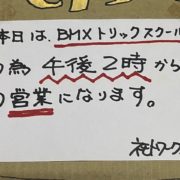 本日は、BMXトリックスクール
の為 午後2時から
の営業になります。
ネモトワーク